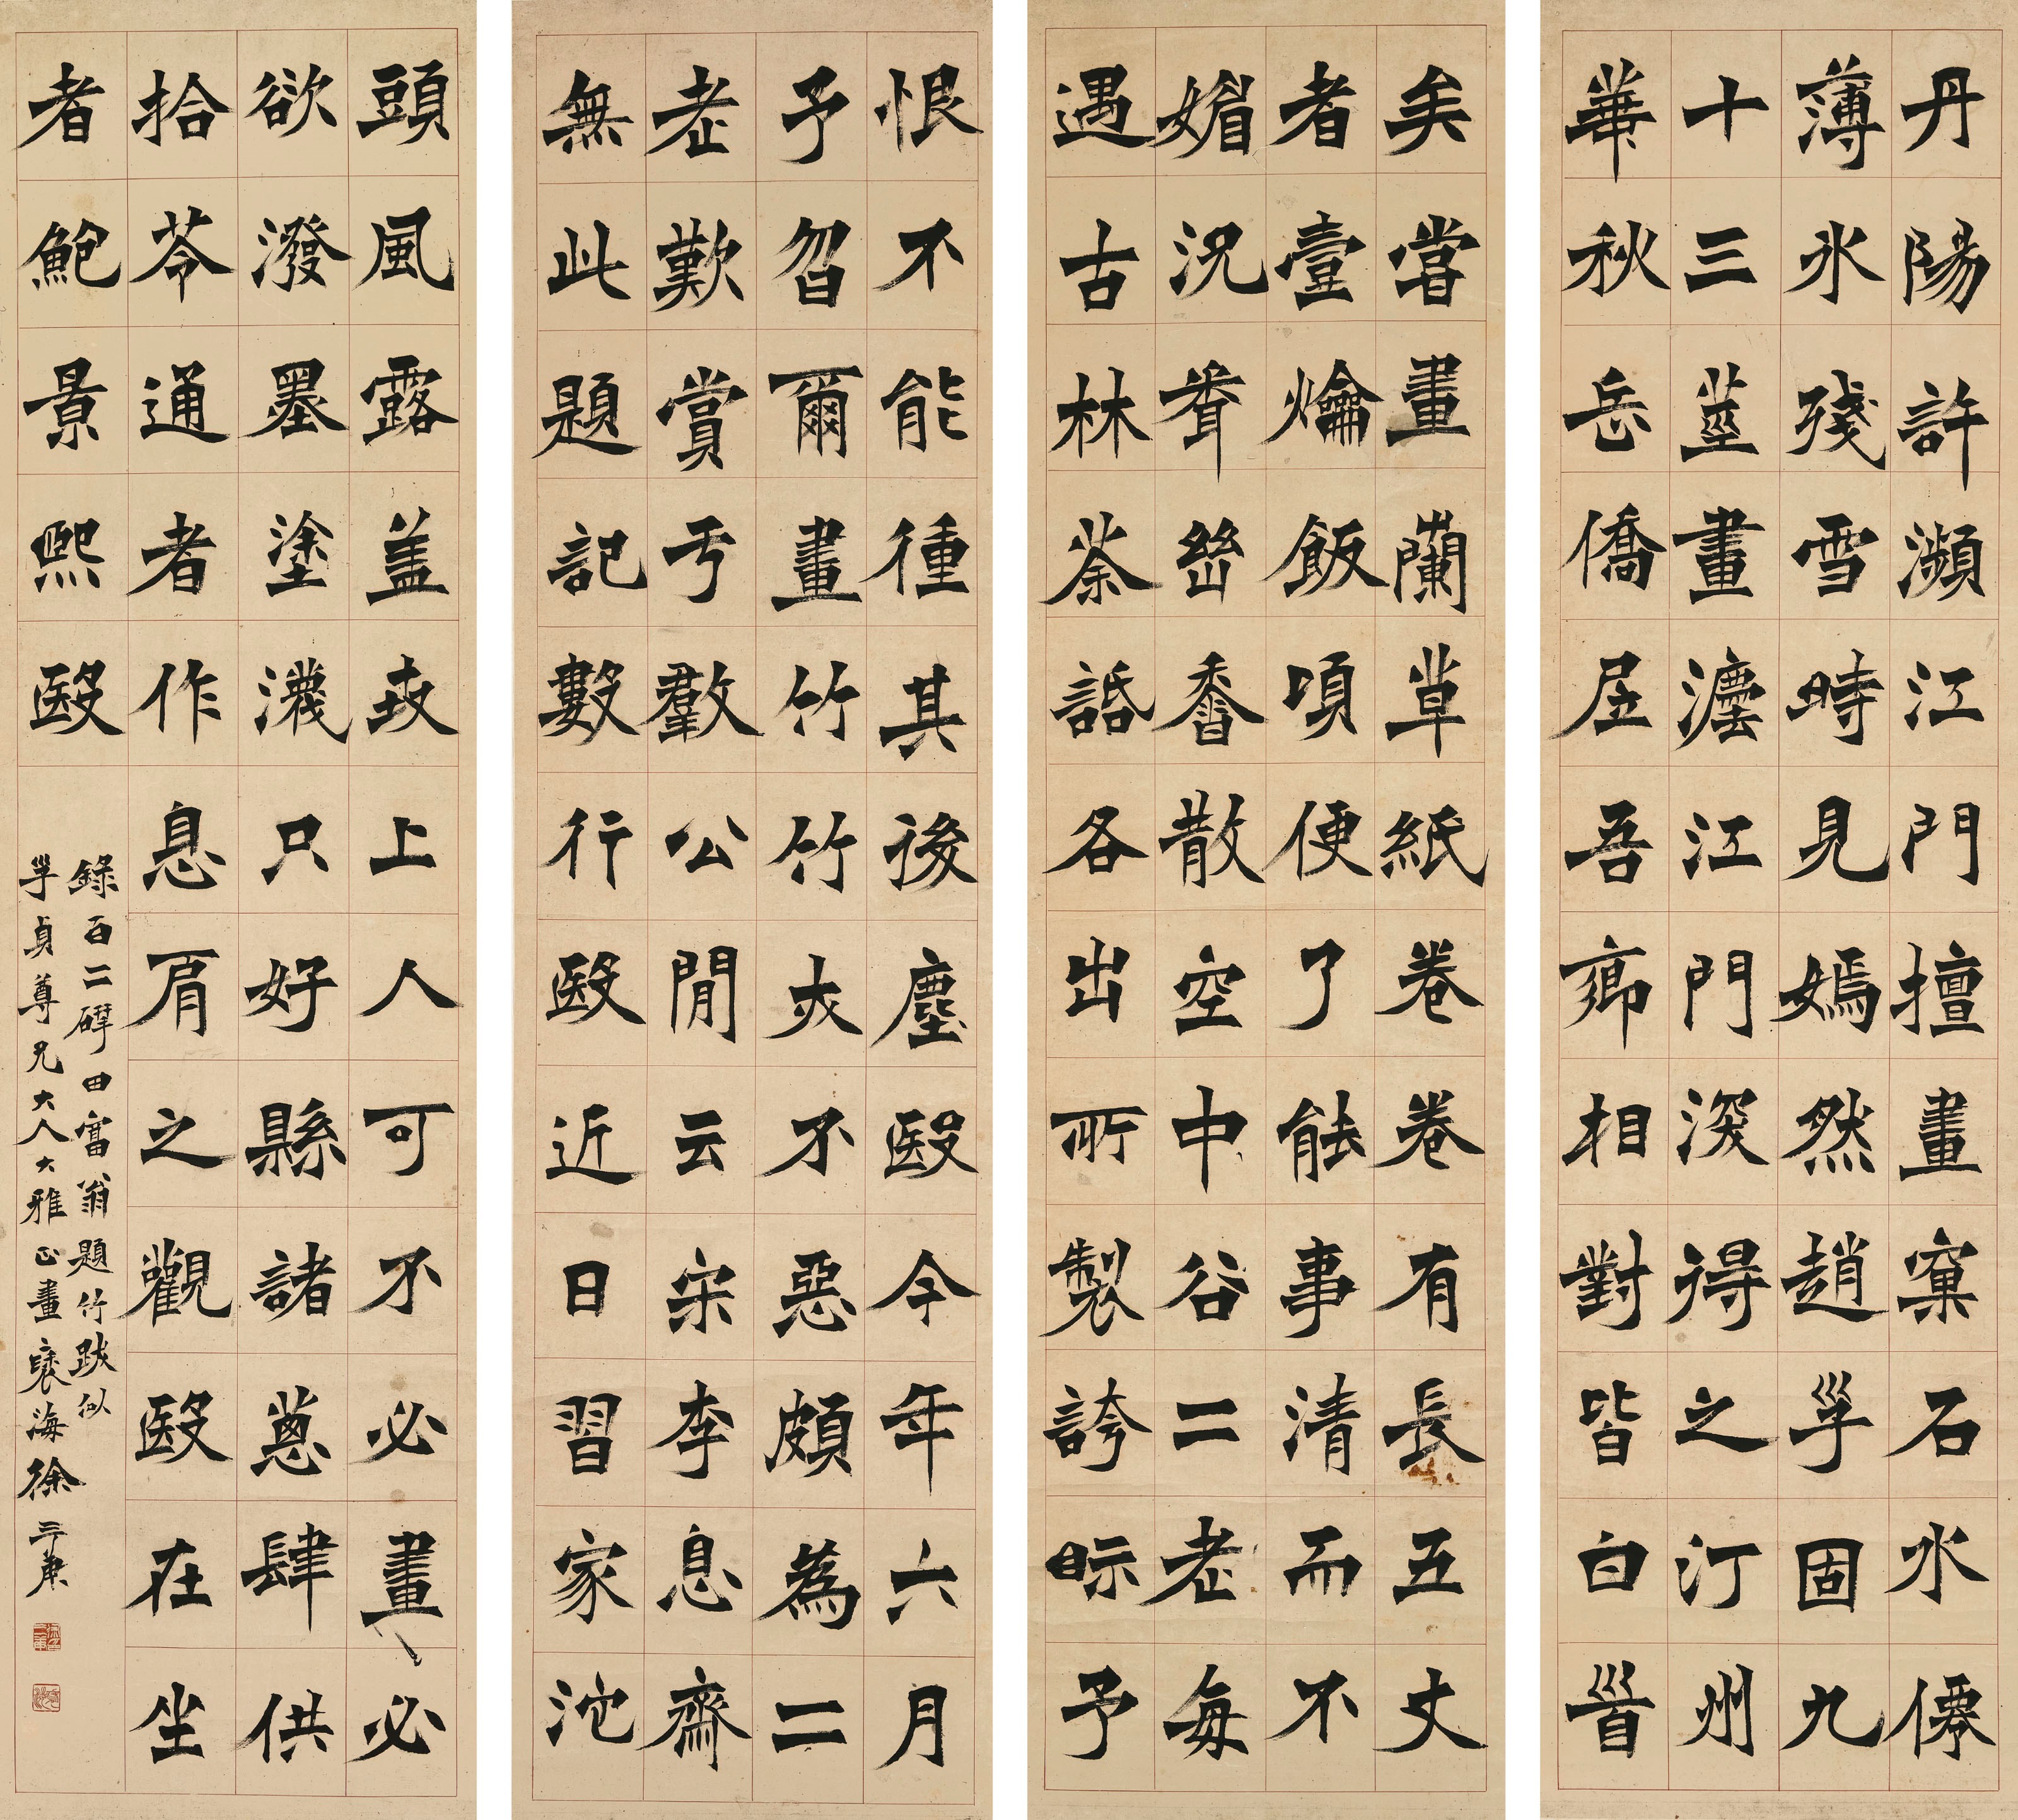 丹陽許瀕江門擅畫窠石水僊
薄氷殘雪時見嫣然趙子固九
十三莖畫瀍江門深得之汀州
華秋岳僑居吾鄉相對皆白首
矣嘗畫蘭草紙卷卷有長五丈
者壹爚飯頃便了能事清而不
媚況聞幽香散空中谷二老每
遇古林荼話各出所製誇眎予
恨不能種其後塵殹今年六月
予曶爾畫竹竹亦不惡頗為二
老歎賞兮羣公閒云宋李息齋
無此題記數行殹近日習家沱
頭風露蓋上人可不必畫必
欲潑墨塗濺只好縣諸蔥肆供
拾芩通者作息肩之觀殹在坐
者鮑景熙殹
錄百二硯田富翁題竹跋似
子貞尊兄大人大雅正畫褱海徐三庚